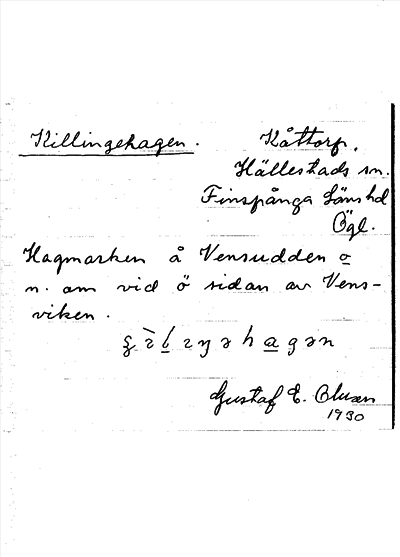 Killingehagen.
Kåttorp,
Hällestads sn.
Finspånga läns hd
Ögl.
Hagmarken å Vensudden o
n. om vid ö sidan av Vens-
viken.
Gustaf E.
1930